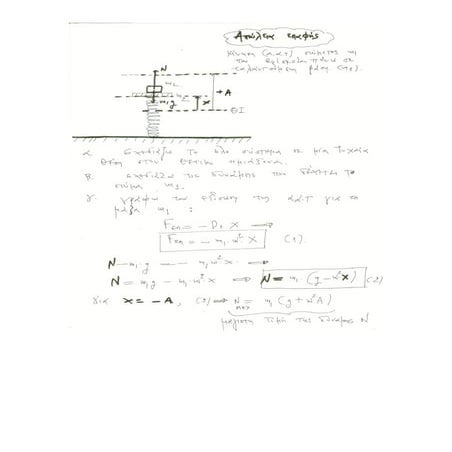 Απώλεια επαφής
Κίνηση (α.α.τ) σώματος m₁
που βρίσκεται πάνω σε
ταλαντούμενη βάση (m₂).
N
m₂
m₁g
x
+A
ΘΙ
α. Σχεδιάζω το όλο σύστημα σε μία τυχαία
θέση στον θετικό ημιάξονα.
β. σχεδιάζω τις δυνάμεις που δέχεται το
σώμα m₁.
γ. γράφω την εξίσωση της α.α.τ για τη
μάζα m₁ :
Fεπ = - D₁ x ⟹
Fεπ = - m₁ ω² x (1).
N - m₁g = - m₁ω² x ⟹
N = m₁g - m₁ω² x ⟹ N = m₁ (g - ω²x) (2)
για x = -A, (2) ⟹ N max = m₁ (g + ω²A)
μέγιστη τιμή της δύναμης N